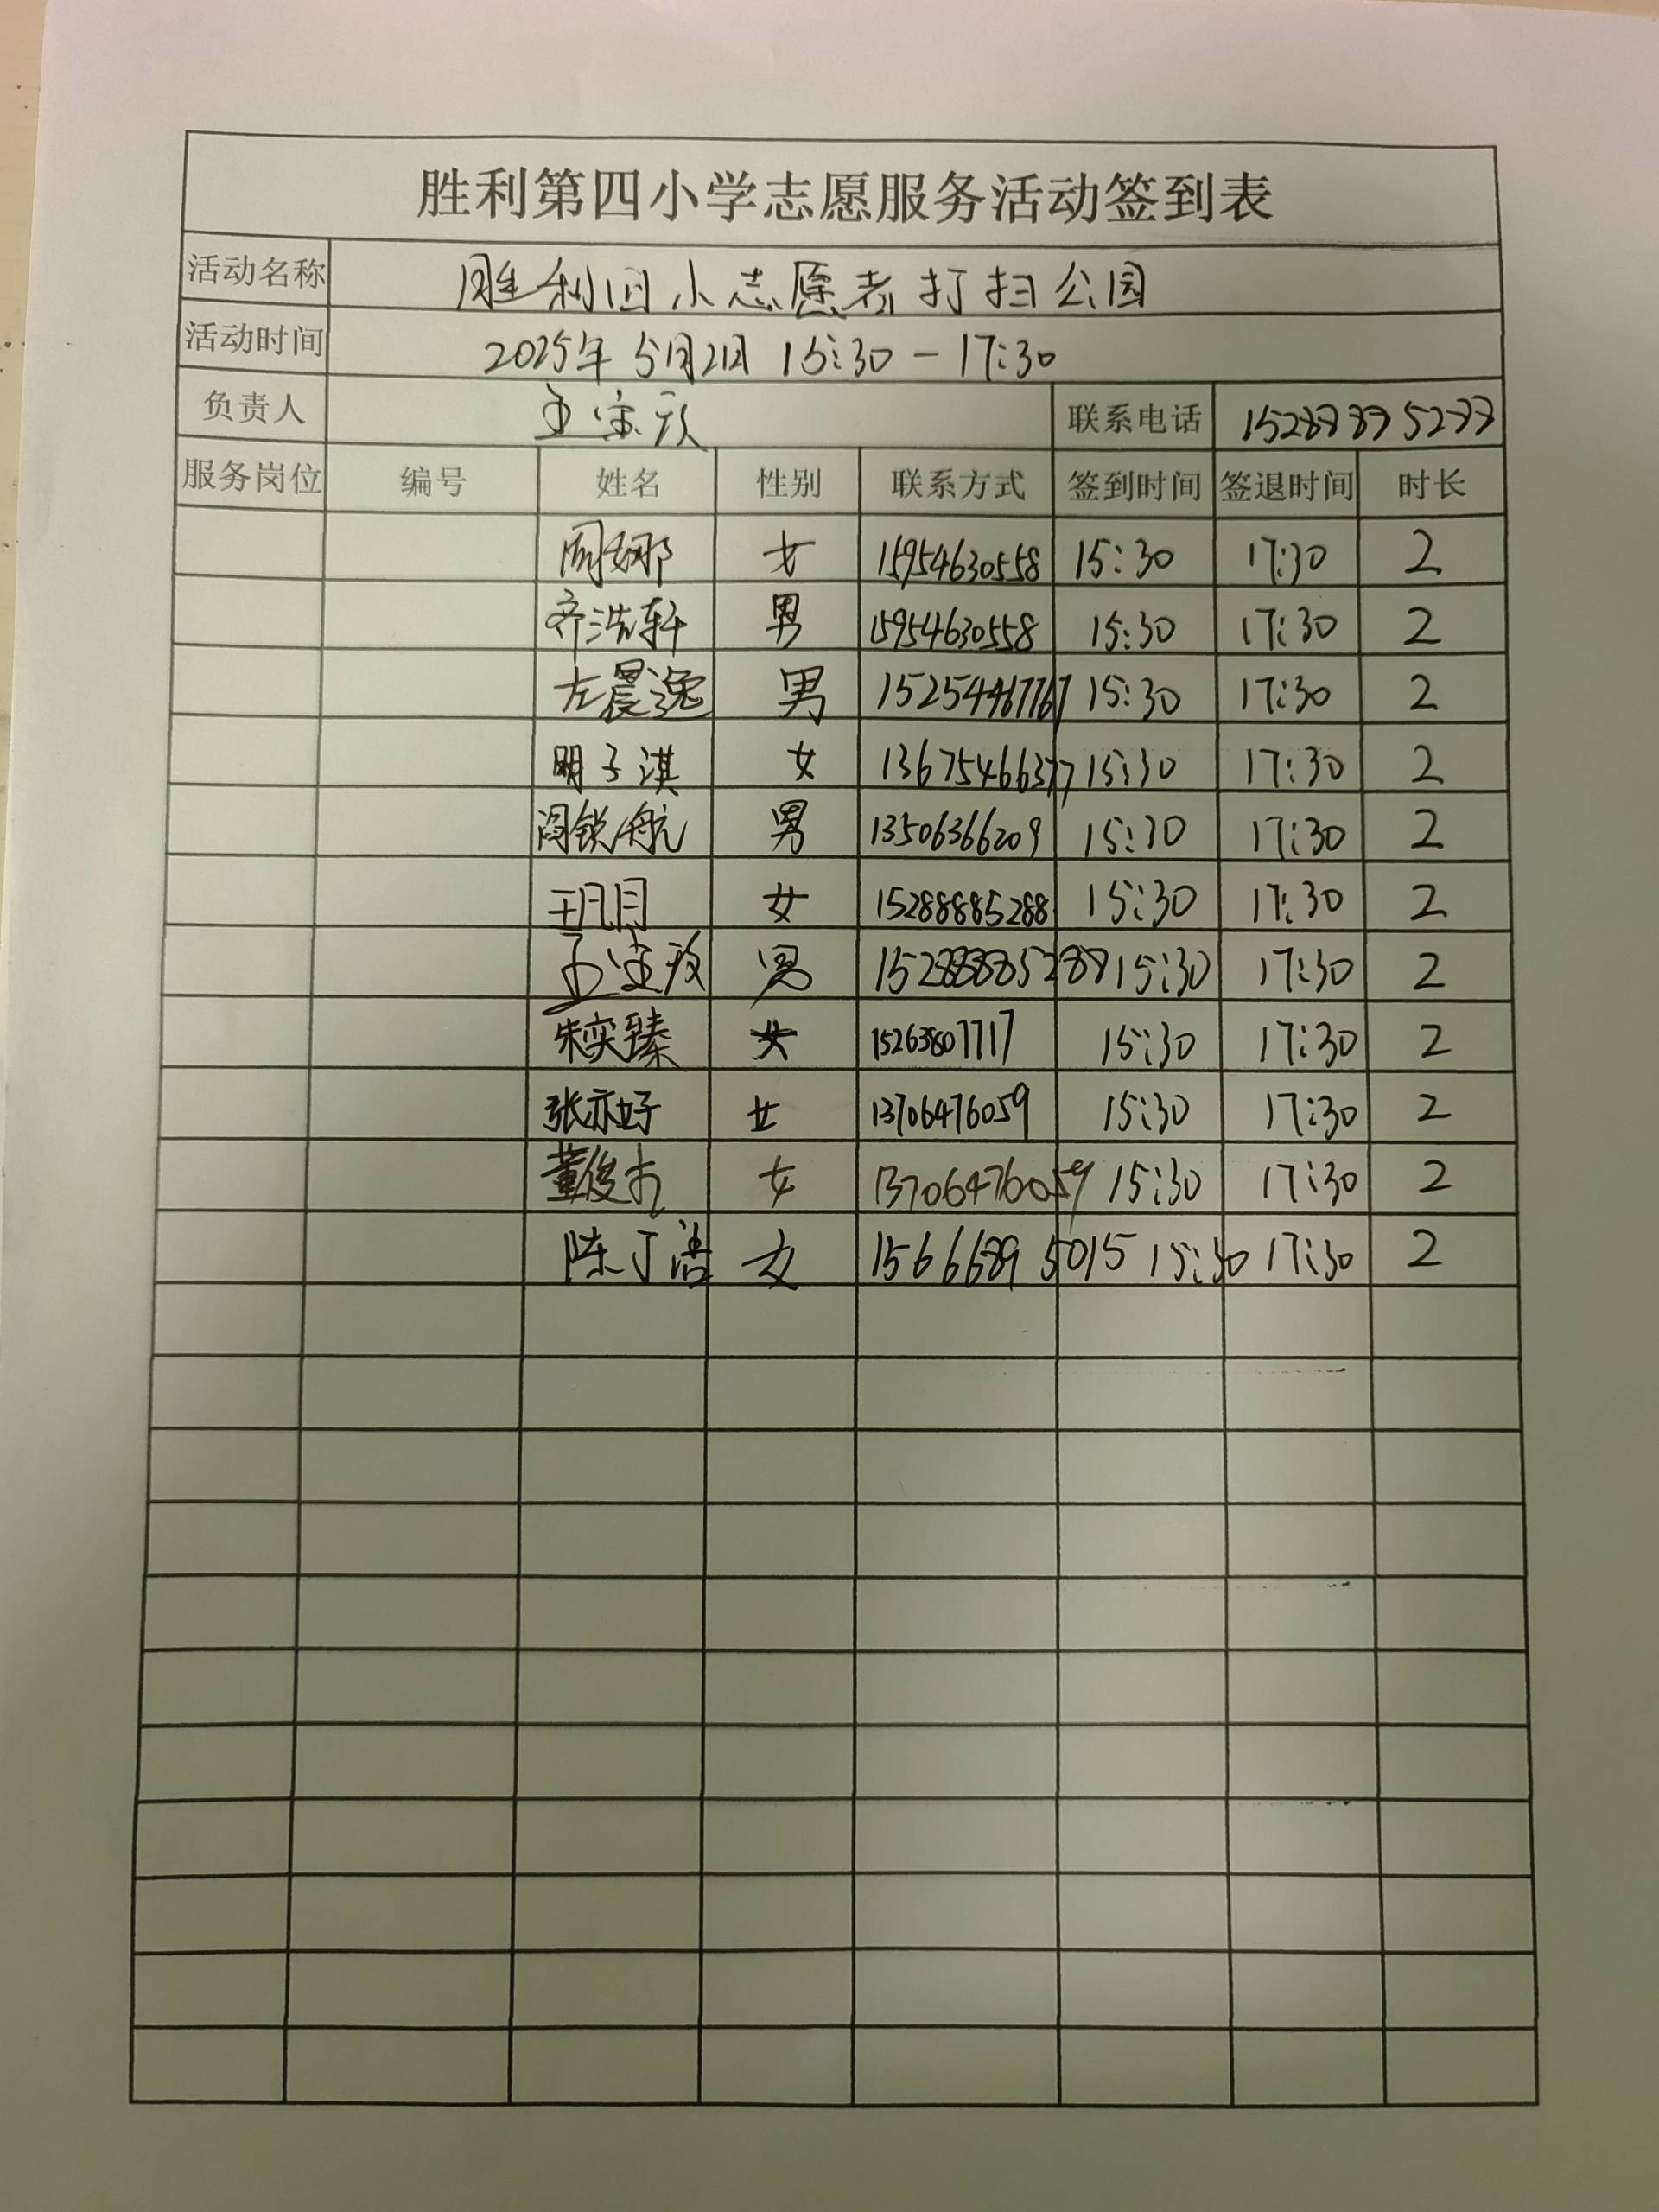 胜利第四小学志愿服务活动签到表
活动名称 胜利四小志愿者打扫公园
活动时间 2025年5月2日 15:30-17:30
负责人 联系电话 15288885288
服务岗位 编号 姓名 性别 联系方式 签到时间 签退时间 时长
周娜 女 15954630558 15:30 17:30 2
齐浩轩 男 15954630558 15:30 17:30 2
左晨逸 男 15254467767 15:30 17:30 2
明子淇 女 13675466377 15:30 17:30 2
阎锐航 男 13506366209 15:30 17:30 2
王月 女 15288885288 15:30 17:30 2
男 15288885288 15:30 17:30 2
朱奕臻 女 15263807717 15:30 17:30 2
张亦好 女 13706476059 15:30 17:30 2
董俊 女 13706476059 15:30 17:30 2
陈丁浩 女 15666895015 15:30 17:30 2